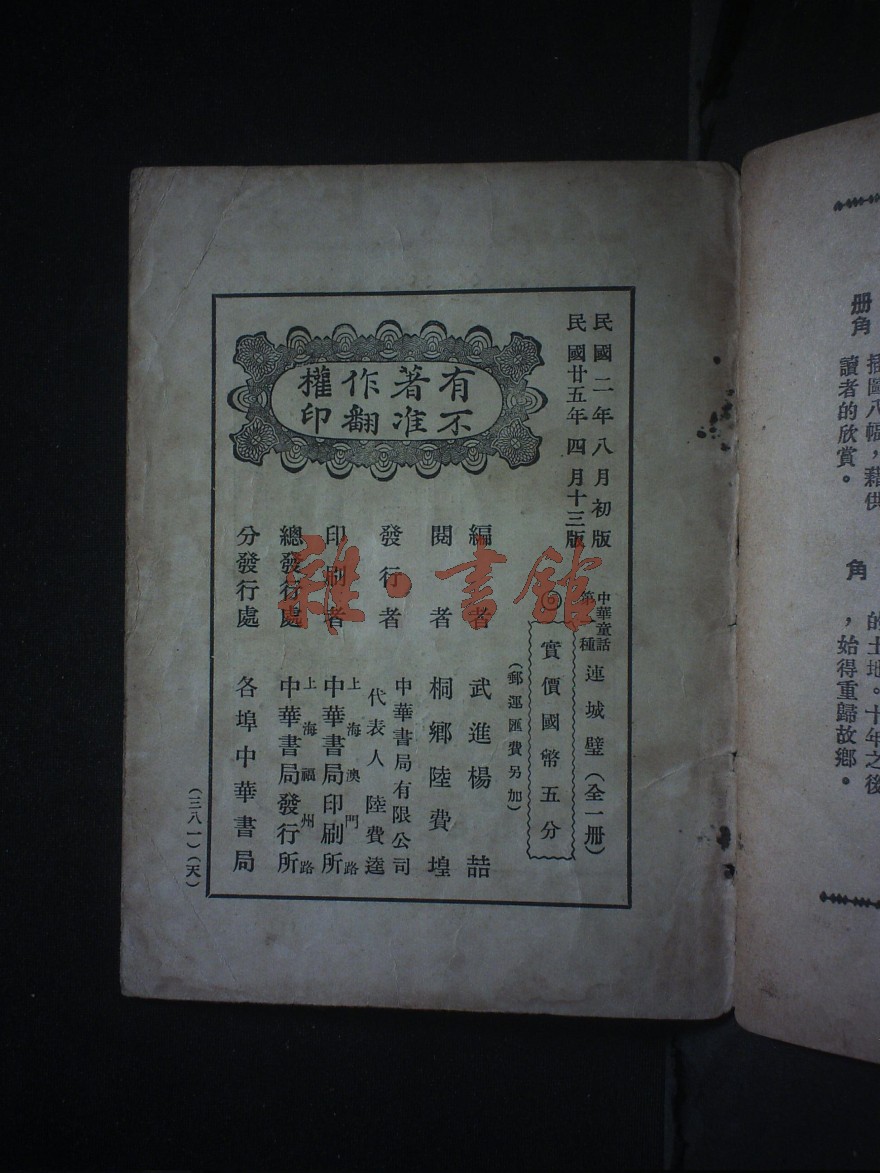 民國二年八月初版
民國廿五年四月十三版
中華童話
第 種
連城璧(全一冊)
實價國幣五分
(郵運匯費另加)
有著作權
不准翻印
編者 武進楊喆
閱者 桐鄉陸費堭
發行者 中華書局有限公司
代表人 陸費逵
印刷者 上海澳門路
中華書局印刷所
總發行處 上海福州路
中華書局發行所
分發行處 各埠中華書局
(三八一)(天)
雜·書館
冊
角
插圖八幅,藉供
讀者的欣賞。
角
的土地。十年之後
,始得重歸故鄉。